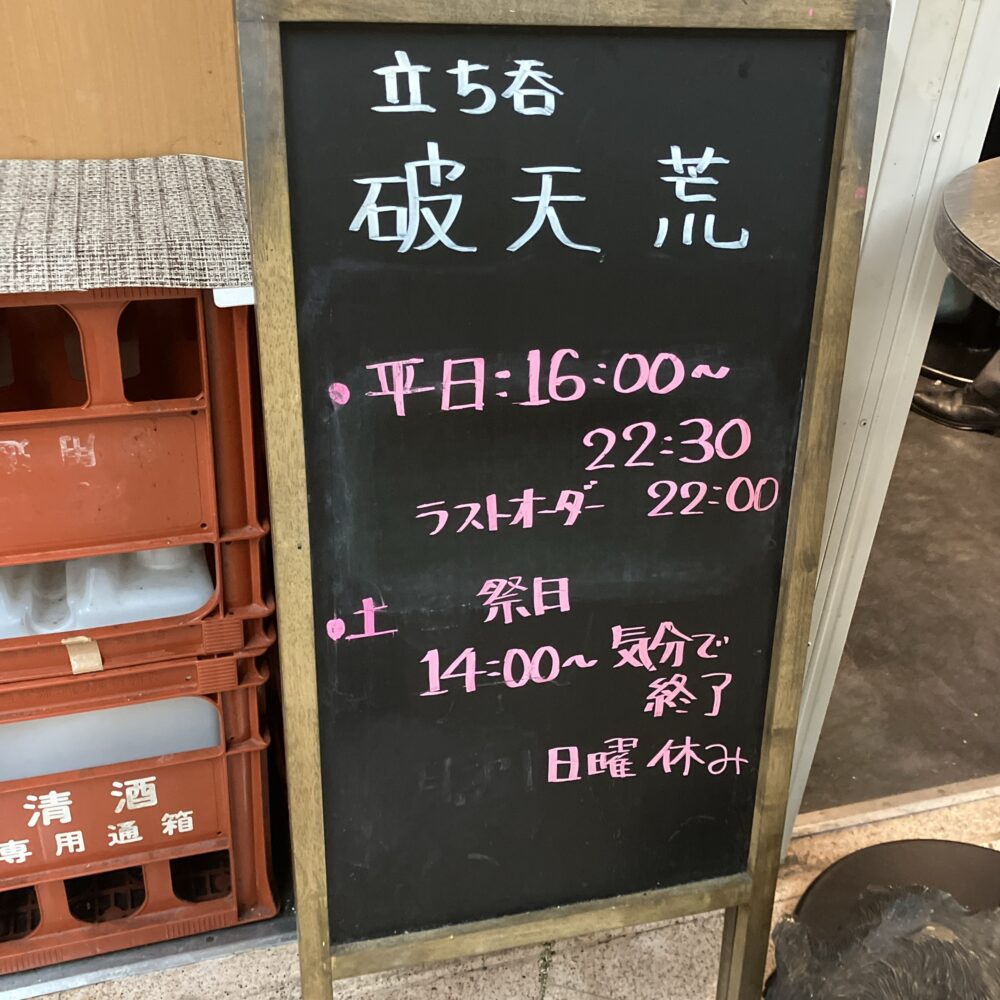 立ち呑
破天荒
・平日:16:00~
22:30
ラストオーダー 22:00
・土 祭日
14:00~気分で
終了
日曜休み
清酒
専用通箱